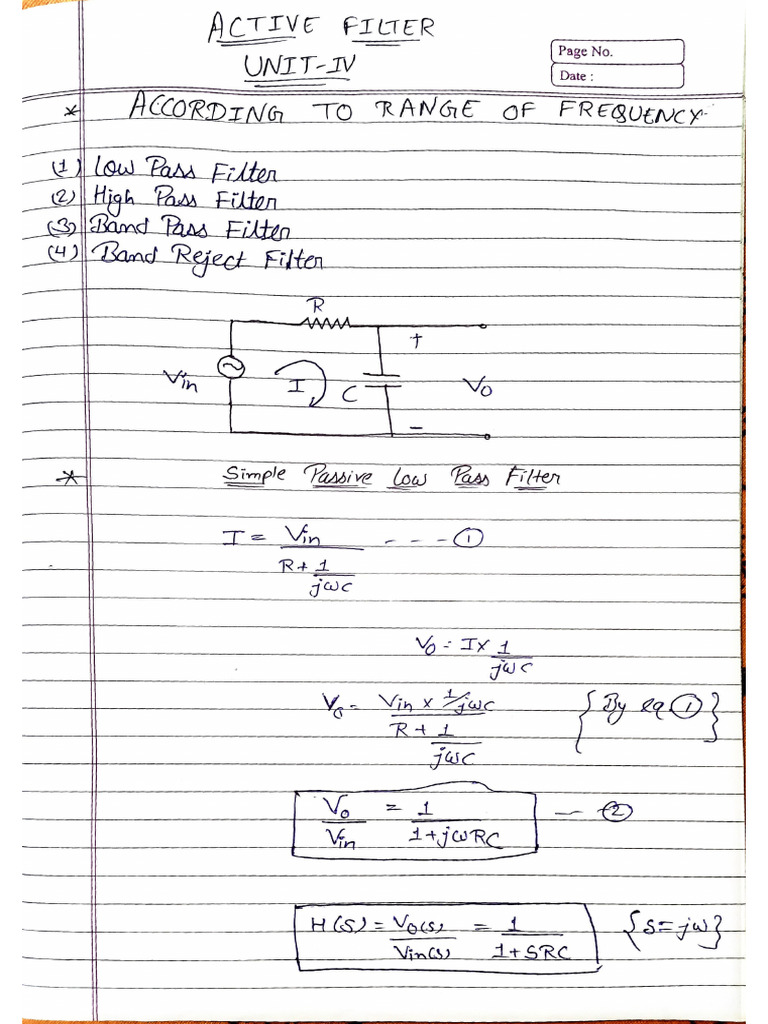 ACTIVE FILTER
UNIT-IV
Page No.
Date :
* ACCORDING TO RANGE OF FREQUENCY.
(1) Low Pass Filter
(2) High Pass Filter
(3) Band Pass Filter
(4) Band Reject Filter
R
+
Vin I C Vo
-
* Simple Passive Low Pass Filter
I = Vin / (R + 1/jωC) --- ①
Vo = I × 1/jωC
Vo = (Vin × 1/jωC) / (R + 1/jωC) {By eq ①}
Vo/Vin = 1/(1+jωRC) — ②
H(S) = Vo(s)/Vin(s) = 1/(1+SRC) {S=jω}